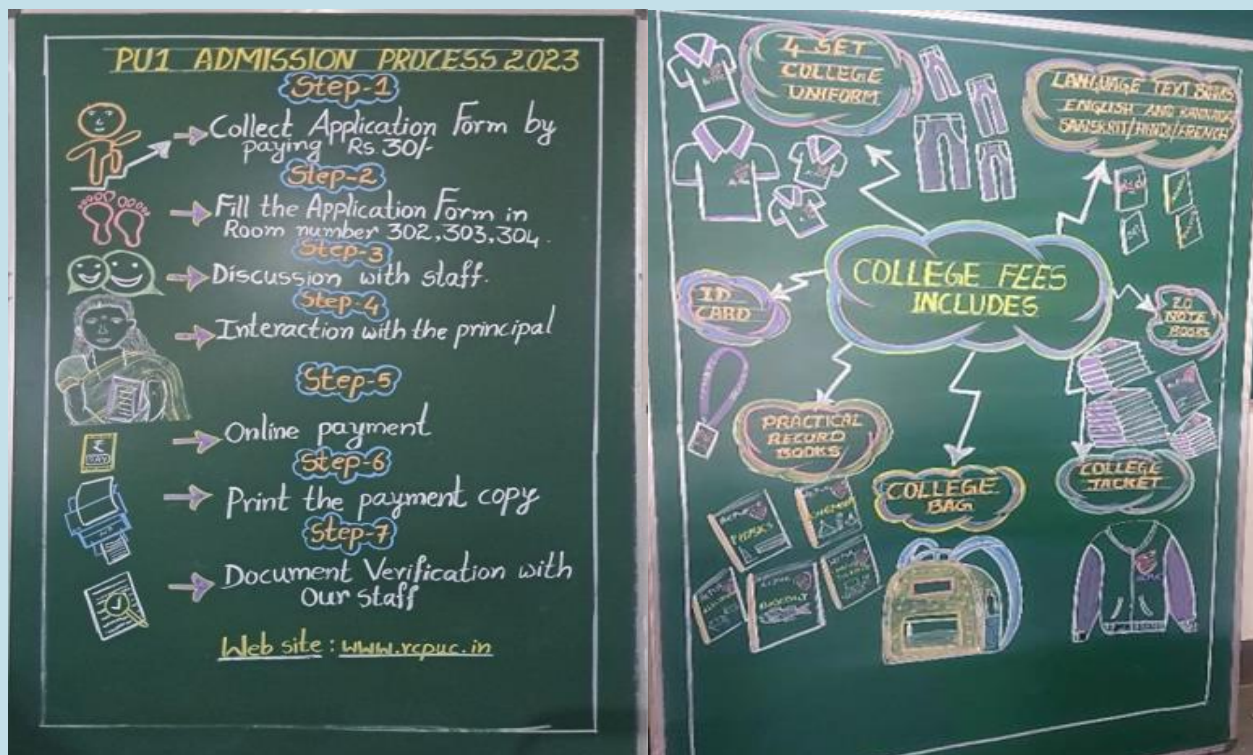 PU1 ADMISSION PROCESS 2023
Step-1
Collect Application Form by
paying Rs 30/-
Step-2
Fill the Application Form in
Room number 302,303,304.
Step-3
Discussion with staff.
Step-4
Interaction with the principal
Step-5
Online payment
Step-6
Print the payment copy
Step-7
Document Verification with
Our staff
Web site : www.rcpuc.in
4 SET
COLLEGE
UNIFORM
LANGUAGE TEXT BOOKS
ENGLISH AND KANNADA
SANSKRIT/HINDI/FRENCH
COLLEGE FEES
INCLUDES
ID
CARD
20
NOTE
BOOKS
PRACTICAL
RECORD
BOOKS
COLLEGE
BAG
COLLEGE
JACKET
PHYSICS